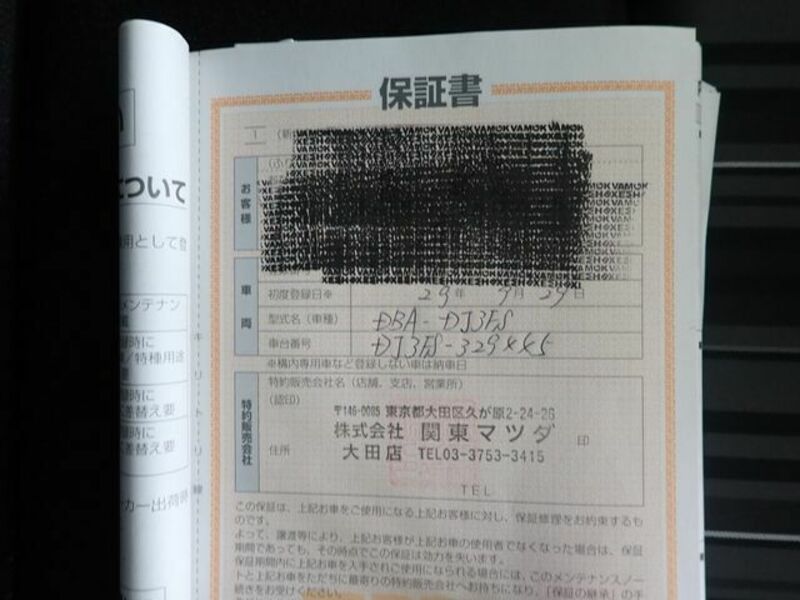 保証書
1
について
用として登
お客様
車両
初度登録日※ 29年 9月 29日
メンテナンス
型式名（車種） DBA-DJ3FS
時に
車台番号
/特種用途
※構内専用車など登録しない車は納車日
特約販売会社
特約販売会社名（店舗、支店、営業所）
（認印）
替時に
〒146-0085 東京都大田区久が原2-24-26
に差替え要
株式会社 関東マツダ 印
住所 大田店 TEL03-3753-3415
差替え要
キリトリ線
TEL
カー出荷
この保証は、上記お車をご使用になる上記お客様に対し、保証修理をお約束するも
のです。
よって、譲渡等により、上記お客様が上記お車の使用者でなくなった場合は、保証
期間であっても、その時点でこの保証は効力を失います。
保証期間内に上記お車を入手されご使用になられる場合には、このメンテナンスノー
トと上記お車をただちに最寄りの特約販売会社へお持ちになり、「保証の継承」の手
続きをお受けください。